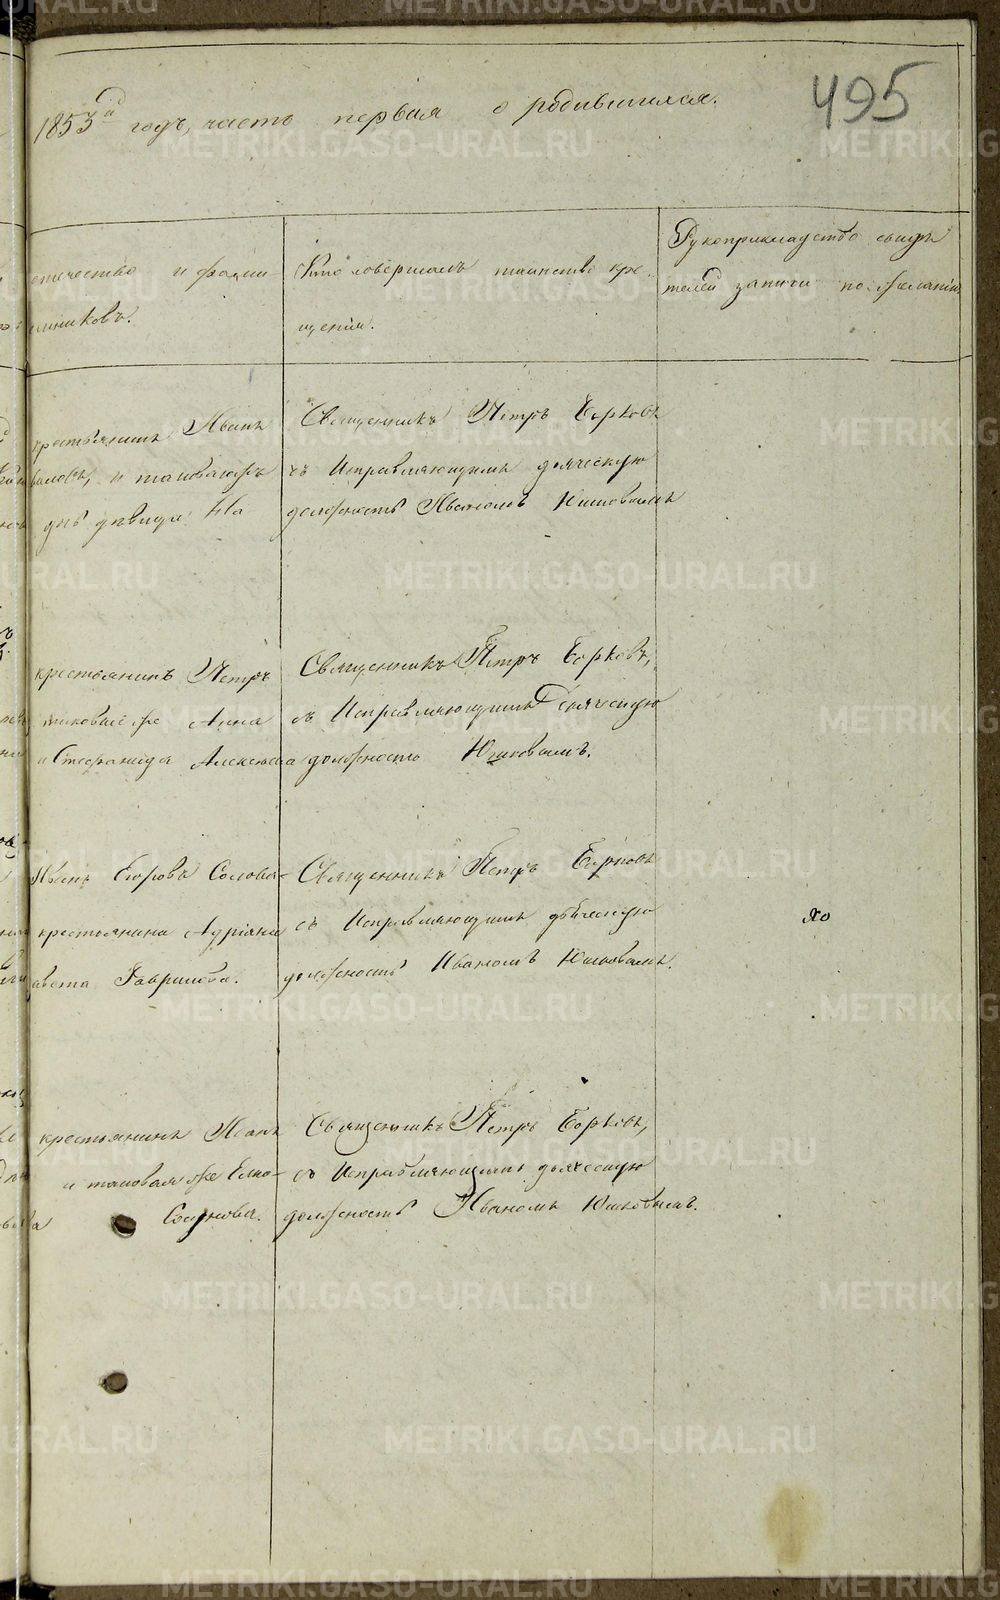 495
1853й годъ, часть первая о родившихся.
отечество и фами
Кто совершалъ таинство кре-
щенія.
Рукоприкладство свидѣ
телей записи по желанію.
крестьянинъ Иванъ
Священникъ Петръ Борковъ
съ Исправляющимъ дьяческую
должность Иваномъ
крестьянинъ Петръ
таковые же Анна
и Стефанида Алексѣева
Священникъ Петръ Борковъ,
съ Исправляющимъ дьяческую
должность Юшковымъ.
Иванъ Егоровъ Солова-
крестьянина Адріана
авета Гаврилова.
Священникъ Петръ Борковъ
съ Исправляющимъ дьяческую
должность Иваномъ Юшковымъ.
крестьянинъ Иванъ
и таковая же
Священникъ Петръ Борковъ,
съ Исправляющимъ дьяческую
должность Иваномъ Юшковымъ.
METRIKI.GASO-URAL.RU